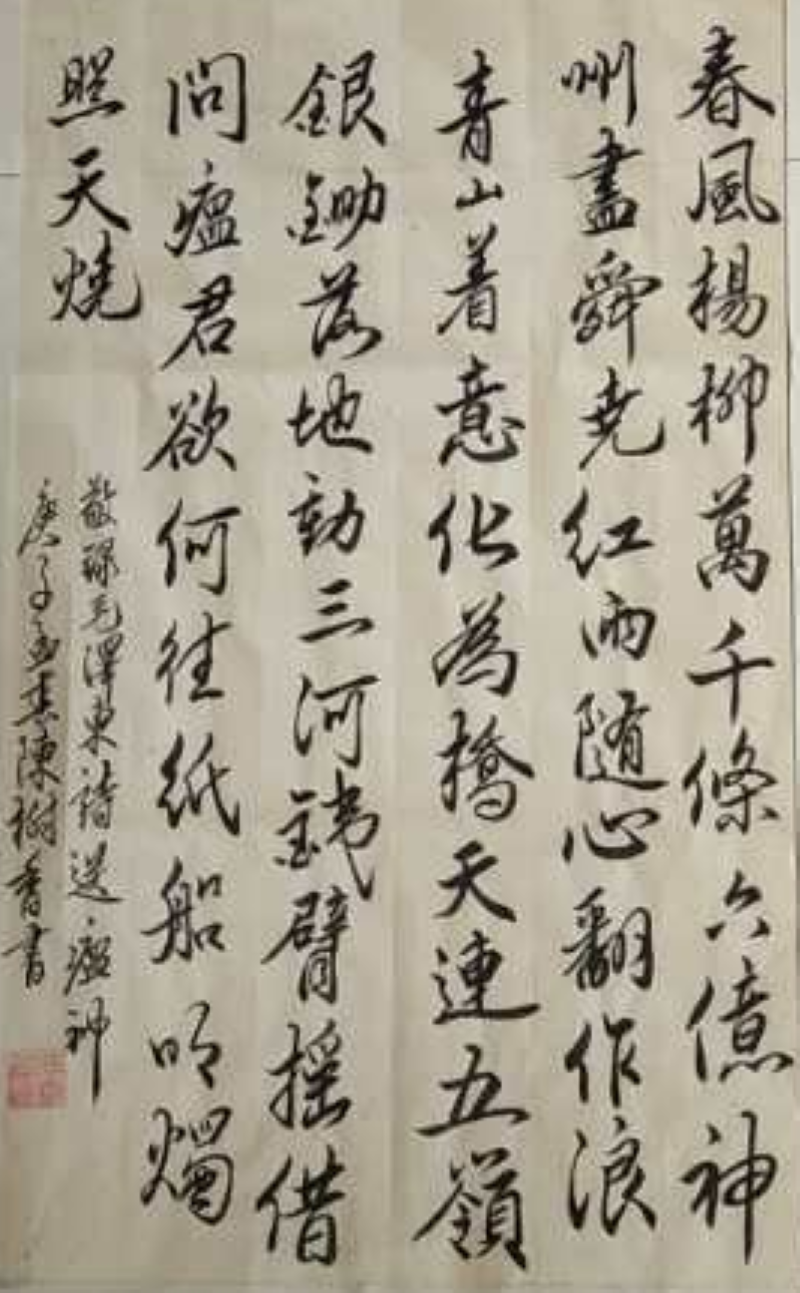 春風楊柳萬千條六億神
州盡舜尭紅雨隨心翻作浪
青山着意化為橋天連五嶺
銀鋤落地動三河鐵臂摇借
問瘟君欲何往紙船明燭
照天燒
敬録毛澤東詩送瘟神
庚子孟春陳樹香書